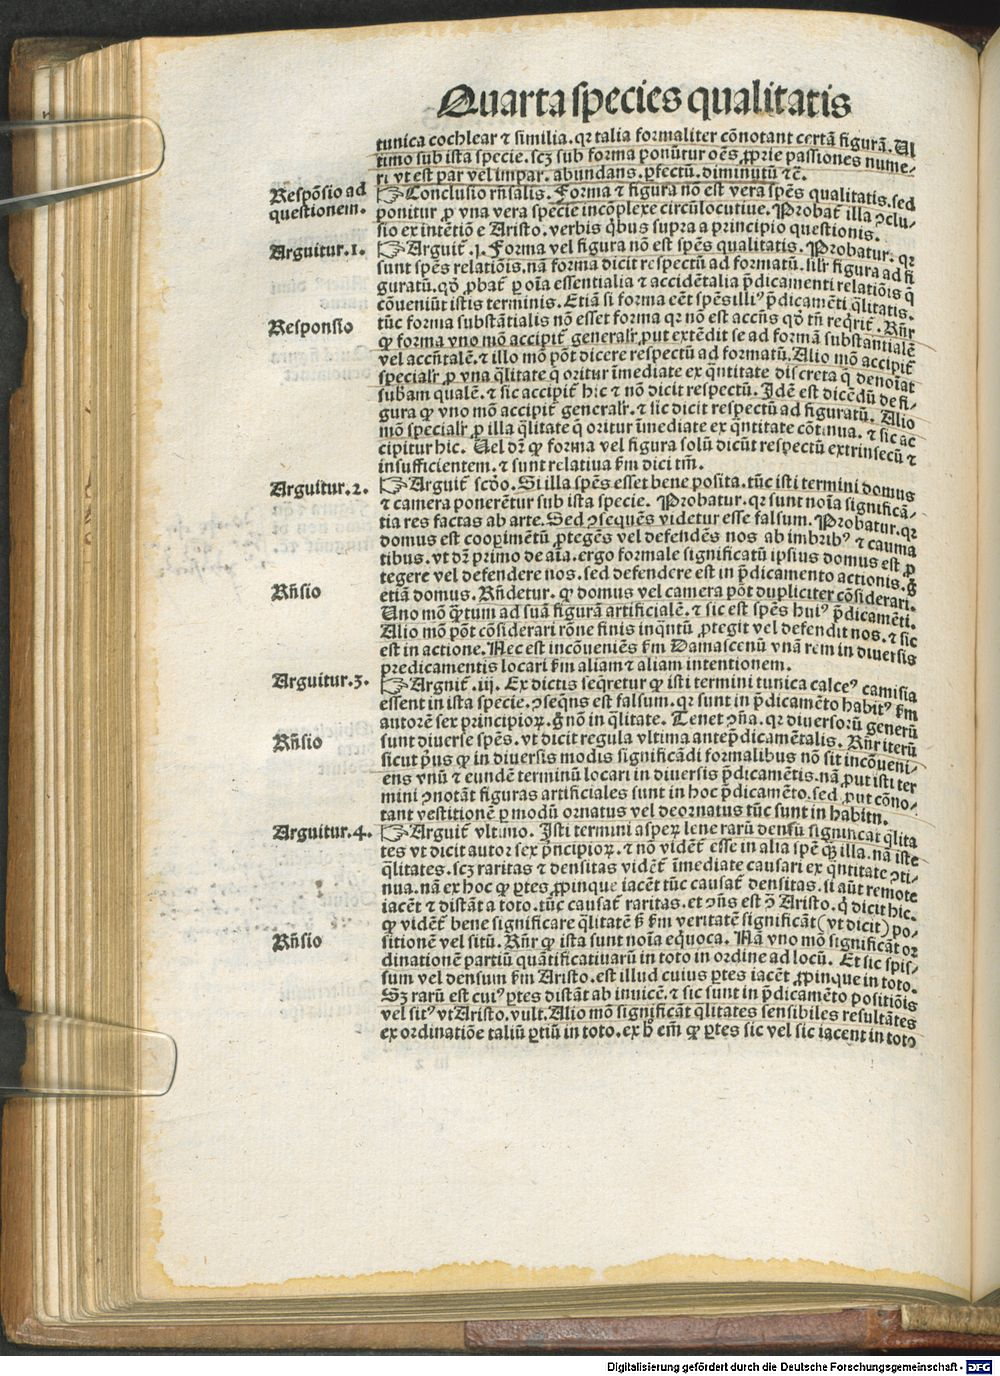 Quarta species qualitatis
tunica cochlear ⁊ similia. qꝛ talia formaliter cōnotant certā figurā. Ul
timo sub ista specie. scꝫ sub forma ponūtur oēs ꝓprie passiones nume⸗
ri vt est par vel impar. abundans. ꝑfectū. diminutū ⁊c̄.
Respōsio ad
questionem.
☞Conclusio rn̄salis. Forma ⁊ figura nō est vera spēs qualitatis. sed
ponitur ꝓ vna vera specie incōplexe circūlocutiue. Probat̄ illa ɔclu⸗
sio ex intētiōe Aristo. verbis q̇bus supra a principio questionis.
Arguitur.1.
☞Arguit̄ .j. Forma vel figura nō est spēs qualitatis. Probatur. qꝛ
sunt spēs relatiōis. nā forma dicit respectū ad formatū. silr̄ figura ad fi
guratū. qḋ ꝓbat̄ ꝑ oīa essentialia ⁊ accidētalia p̄dicamenti relatiōis q̄
cōueniūt istis terminis. Etiā si forma eēt spēs illiꝰ p̄dicamēti q̄litatis.
tūc forma substātialis nō esset forma qꝛ nō est accn̄s qḋ tn̄ reqrit̄. Rn̄r
Responsio
ꝙ forma vno mō accipit̄ generalr̄ ꝓut extēdit se ad formā substantialē
vel accn̄talē. ⁊ illo mō pōt dicere respectū ad formatū. Alio mō accipit̄
specialr̄ ꝓ vna q̄litate q̄ oritur īmediate ex q̄ntitate discreta q̄ denoīat
subām qualē. ⁊ sic accipit̄ hic ⁊ nō dicit respectū. Idē est dicēdū de fi⸗
gura ꝙ vno mō accipit̄ generalr̄. ⁊ sic dicit respectū ad figuratū. Alio
mō specialr̄ ꝓ illa q̄litate q̄ oritur īmediate ex q̄ntitate cōtinua. ⁊ sic ac
cipitur hic. Uel dr̄ ꝙ forma vel figura solū dicūt respectū extrinsecū ⁊
insufficientem. ⁊ sunt relatiua ẜm dici tm̄.
Arguitur.2.
☞Arguit̄ scḋo. Si illa spēs esset bene posita. tūc isti termini domus
⁊ camera ponerētur sub ista specie. Probatur. qꝛ sunt noīa significā⸗
tia res factas ab arte. Sed ɔsequēs videtur esse falsum. Probatur. qꝛ
domus est cooꝑimētū ꝓtegēs vel defendēs nos ab imbribꝰ ⁊ cauma
tibus. vt dr̄ primo de aīa. ergo formale significatū ipsius domus est ꝓ
tegere vel defendere nos. sed defendere est in p̄dicamento actionis. g̊
etiā domus. Rn̄detur. ꝙ domus vel camera pōt dupliciter cōsiderari.
Rn̄sio
Uno mō q̄ntum ad suā figurā artificialē. ⁊ sic est spēs huiꝰ p̄dicamēti.
Alio mō pōt cōsiderari rōne finis inq̄ntū ꝓtegit vel defendit nos. ⁊ sic
est in actione. Nec est incōueniēs ẜm Damascenū vnā rem in diuersis
predicamentis locari ẜm aliam ⁊ aliam intentionem.
Arguitur.3.
☞Arguit̄ .iij. Ex dictis seq̄retur ꝙ isti termini tunica calceꝰ camisia
essent in ista specie. ɔseq̄ns est falsum. qꝛ sunt in p̄dicamēto habitꝰ ẜm
autorē sex principioꝝ. g̊ nō in q̄litate. Tenet ɔn̄a. qꝛ diuersorū generū
sunt diuerse spēs. vt dicit regula vltima antep̄dicamētalis. Rn̄r iterū
Rn̄sio
sicut p̄us ꝙ in diuersis modis significādi formalibus nō sit incōueni⸗
ens vnū ⁊ eundē terminū locari in diuersis p̄dicamētis. nā ꝓut isti ter
mini ɔnotāt figuras artificiales sunt in hoc p̄dicamēto. sed ꝓut cōno⸗
tant vestitionē ꝑ modū ornatus vel deornatus tūc sunt in habitu.
Arguitur.4.
☞Arguit̄ vltimo. Isti termini asperꝝ lene rarū densū significāt q̄lita
tes vt dicit autor sex p̄ncipioꝝ. ⁊ nō vidēt̄ esse in alia spē q̄ꝫ illa. nā iste
q̄litates. scꝫ raritas ⁊ densitas vidēt̄ īmediate causari ex q̄ntitate ɔti⸗
nua. nā ex hoc ꝙ ꝑtes ꝓpinque iacēt tūc causat̄ densitas. si aūt remote
iacēt ⁊ distāt a toto. tūc causat̄ raritas. et ɔn̄s est ɔ̄ Aristo. q̇ dicit hic.
ꝙ vidēt̄ bene significare q̄litatē ß ẜm veritatē significāt (vt dicit) po⸗
sitionē vel sitū. Rn̄r ꝙ ista sunt noīa equoca. Nā vno mō significāt or
Rn̄sio
dinationem partiū quātificatiuarū in toto in ordine ad locū. Et sic spis⸗
sum vel densum ẜm Aristo. est illud cuius ꝑtes iacēt ꝓpinque in toto.
Sꝫ rarū est cuiꝰ ꝑtes distāt ab inuicē. ⁊ sic sunt in p̄dicamēto positiōis
vel sitꝰ vt Aristo. vult. Alio mō significāt q̄litates sensibiles resultātes
ex ordinatiōe taliū ꝑtiū in toto. ex ḣ em̄ ꝙ ꝑtes sic vel sic iacent in toto
Digitalisierung gefördert durch die Deutsche Forschungsgemeinschaft - DFG